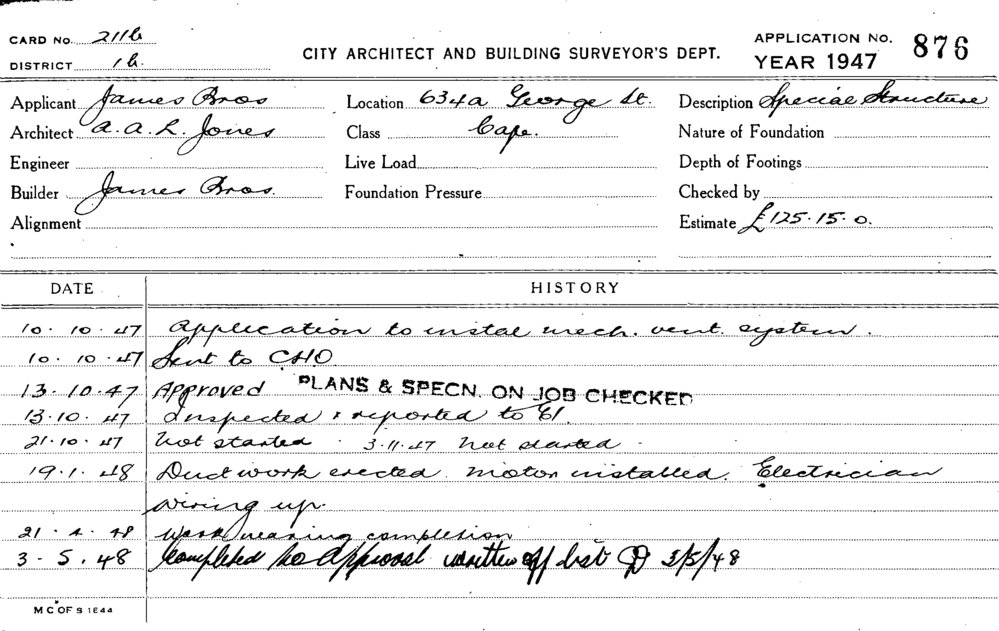 CARD NO. 211b CITY ARCHITECT AND BUILDING SURVEYOR'S DEPT. APPLICATION NO. 876
DISTRICT 1b. YEAR 1947
Applicant James Bros Location 634a George St. Description Special Structure
Architect A. A. L. Jones Class Cafe. Nature of Foundation
Engineer Live Load Depth of Footings
Builder James Bros. Foundation Pressure Checked by
Alignment Estimate £125.15.0.
DATE HISTORY
10.10.47 Application to instal mech. vent. system.
10.10.47 Sent to CHO
13.10.47 Approved PLANS & SPECN. ON JOB CHECKED
13.10.47 Inspected & reported to
21.10.47 Not started 3.11.47 Not started
19.1.48 Duct work erected. Motor installed. Electrician
wiring up.
21.4.48 Work nearing completion
3.5.48 Completed to approval written off list 3/5/48
M C OF S 1844